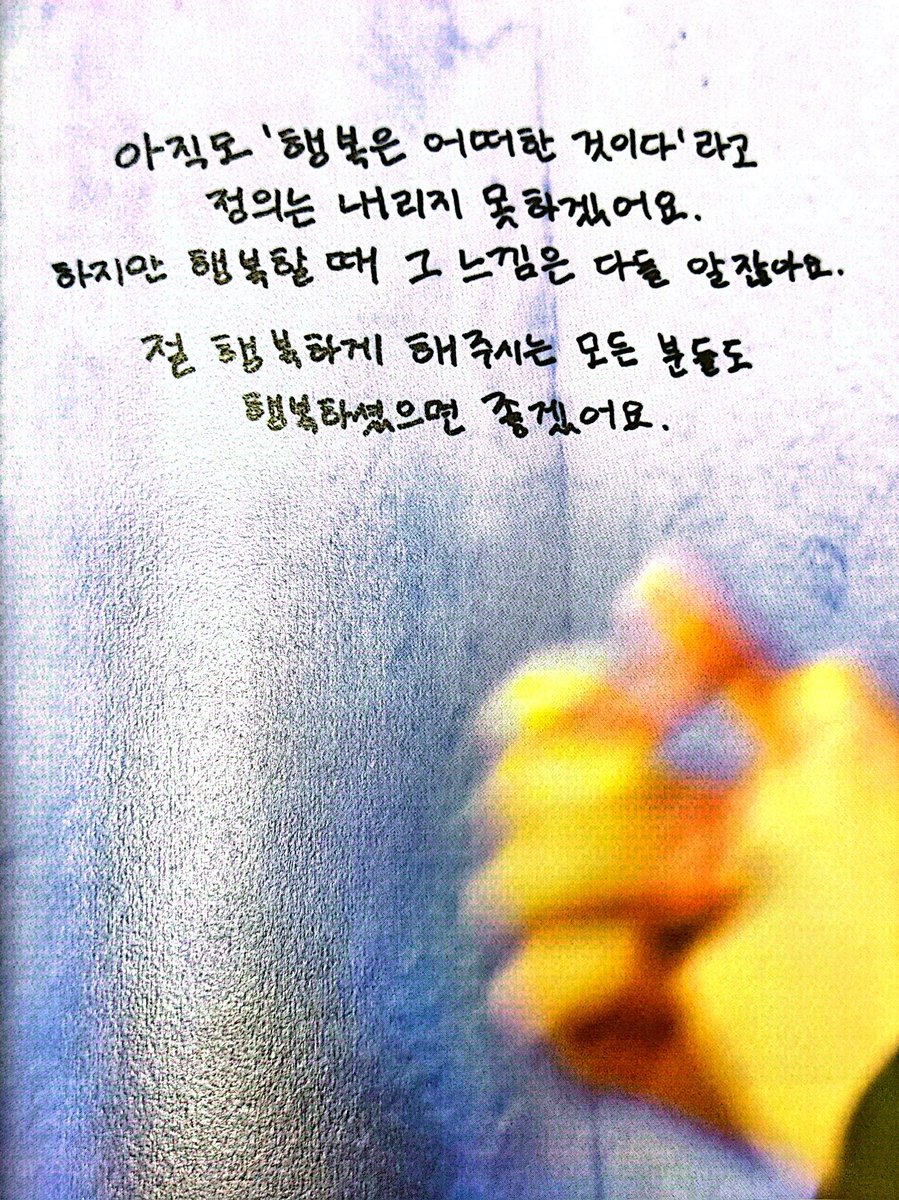 아직도 '행복은 어떠한 것이다'라고
정의는 내리지 못하겠어요.
하지만 행복할 때 그 느낌은 다들 알잖아요.
절 행복하게 해주시는 모든 분들도
행복하셨으면 좋겠어요.